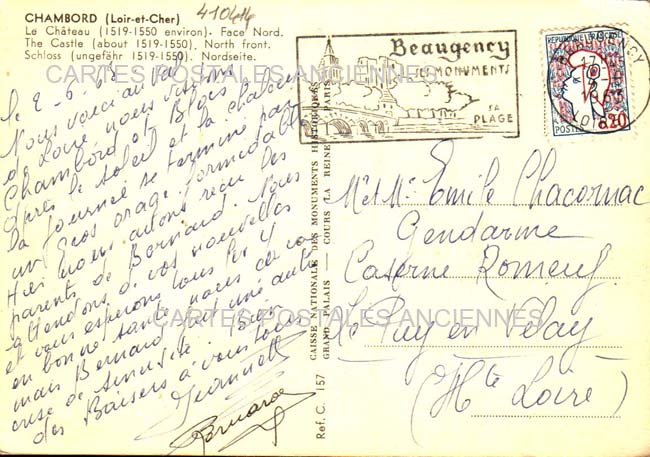 CHAMBORD (Loir-et-Cher)
Le Château (1519-1550 environ). Face Nord.
The Castle (about 1519-1550). North front.
Schloss (ungefähr 1519-1550). Nordseite.
410414
le 2-6-63
Nous voici au
de Loire nous visitons
Chambord et Blois
après le soleil et la chaleur
la journée se termine par
un gros orage formidable
Hier nous avons reçu des
parents de Bernard. Nous
attendons de vos nouvelles
et vous espérons tous les 4
en bonne santé, nous ça va
mais Bernard fait une autre
crise de sinusite. Gros
des Baisers à vous tous
Jeannette
Bernard
CAISSE NATIONALE DES MONUMENTS HISTORIQUES
GRAND PALAIS — COURS LA REINE PARIS
Ref. C. 157
Beaugency
SES MONUMENTS
SA
PLAGE
REPUBLIQUE FRANÇAISE
POSTES
0,20
BEAUGENCY
M et Me Emile Chacornac
Gendarme
Caserne Romeuf
Le Puy en Velay
(Hte Loire)
CARTES POSTALES ANCIENNES
CARTES POSTALES ANCIENNES